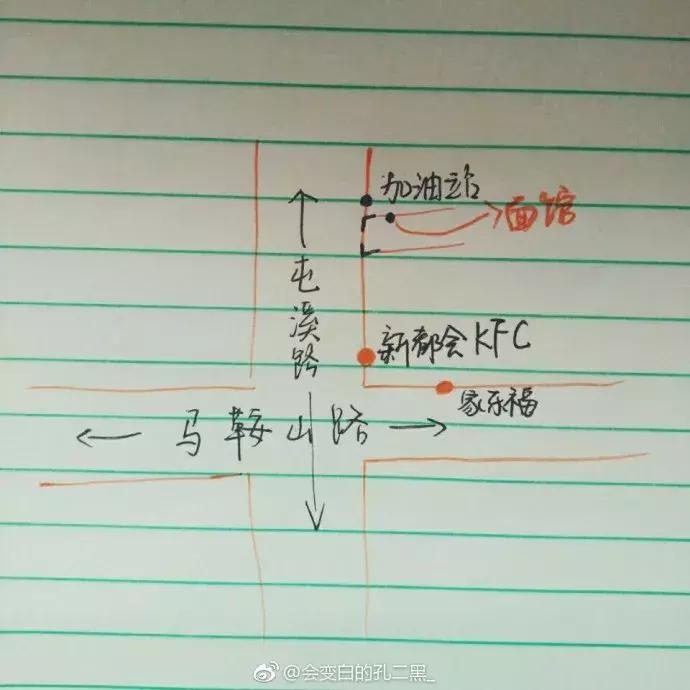 加油站
面馆
屯溪路
新都会KFC
家乐福
马鞍山路
@会变白的孔二黑_